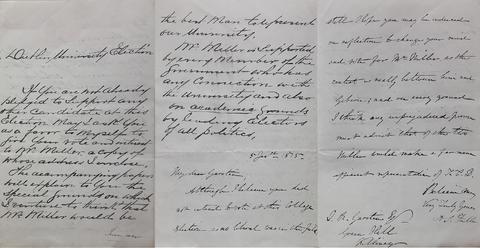 Dublin University Election
If you are not already
pledged to support any
other Candidate at this
Election, may I ask you
as a favor to myself to
give your vote and interest
to Mr Miller, a copy of
whose address I enclose.
The accompanying papers
will explain to you the
special grounds on which
I venture to think that
Mr Miller would be
the best Man to represent
our University.
Mr Miller is supported
by every Member of the
Government who has
any Connection with
the University and also
on academic grounds
by leading Electors
of all politics.
1875.
My dear Garstin,
Although I believe you had
not intend to vote at this College
election
still I hope you may be induced
on reflection to change your mind
and vote for Mr Miller as the
contest is really between him and
Gibson; and on every ground
I think any unprejudiced person
must admit that of the two
Miller would make a far more
efficient representative of T.C.D.
Believe me,
Very truly yours
J. R. Garstin Esq
Green Hill
Killiney